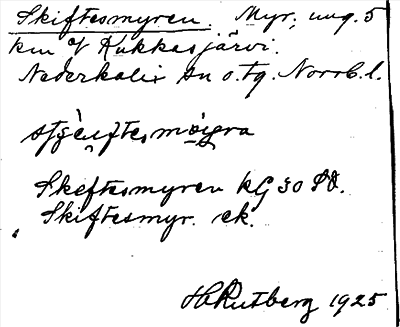 Skiftesmyren. Myr, ung. 5
km V Kukkasjärvi.
Nederkalix sn o. tg. Norrb. l.
Skeftesmyren kG 30 SO.
Skiftesmyr. ek.
H Rutberg 1925